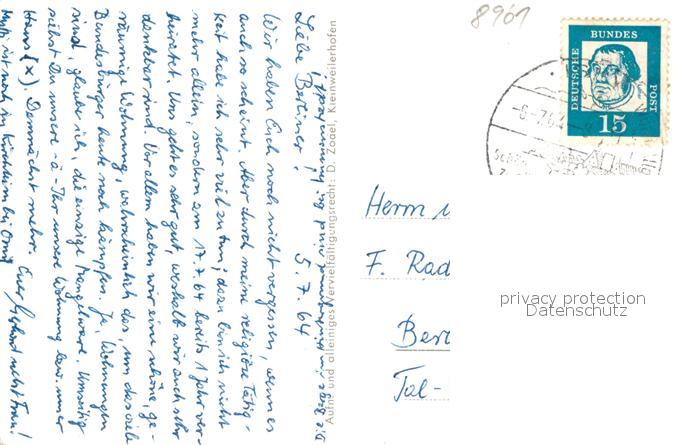 8961
DEUTSCHE BUNDES POST
15
-6.-7.64
Herrn u
F. Rad
Berl
Tal-
privacy protection
Datenschutz
Aufn. und alleiniges Vervielfältigungsrecht: D. Zoael, Kleinweilerhofen
5.7.64
Liebe Berliner!
Wir haben Euch noch nicht vergessen, wenn es
auch so scheint. Aber durch meine religiöse Tätig-
keit habe ich sehr viel zu tun; dazu bin ich nicht
mehr allein, sondern am 17.7.64 bereits 1 Jahr ver-
heiratet. Uns geht es sehr gut, weshalb wir auch sehr
dankbar sind. Vor allem haben wir eine schöne, ge-
räumige Wohnung, wahrscheinlich das, um das viele
Bundesbürger heute noch kämpfen. Ja, Wohnungen
sind, glaube ich, die einzige Mangelware. Umseitig
sehst Du unsere - à Ihr unsere Wohnung bzw. unser
Haus (X). Demnächst mehr. Euer Gerhard nebst Frau!
Mutti ist noch in Kirchheim bei